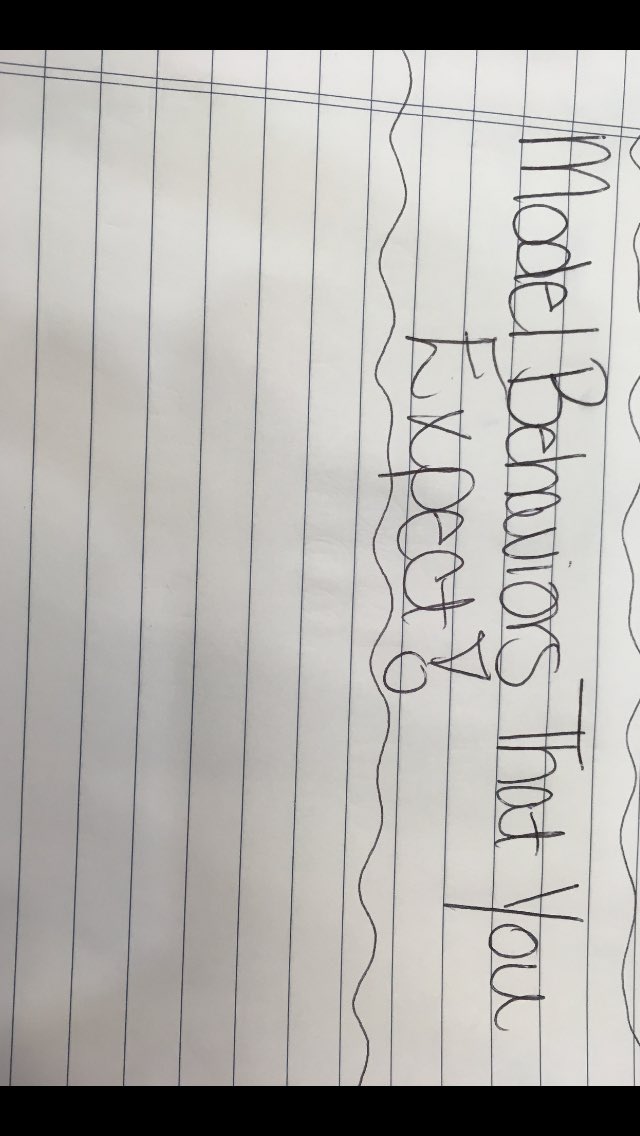 Model Behaviors That You
Expect!